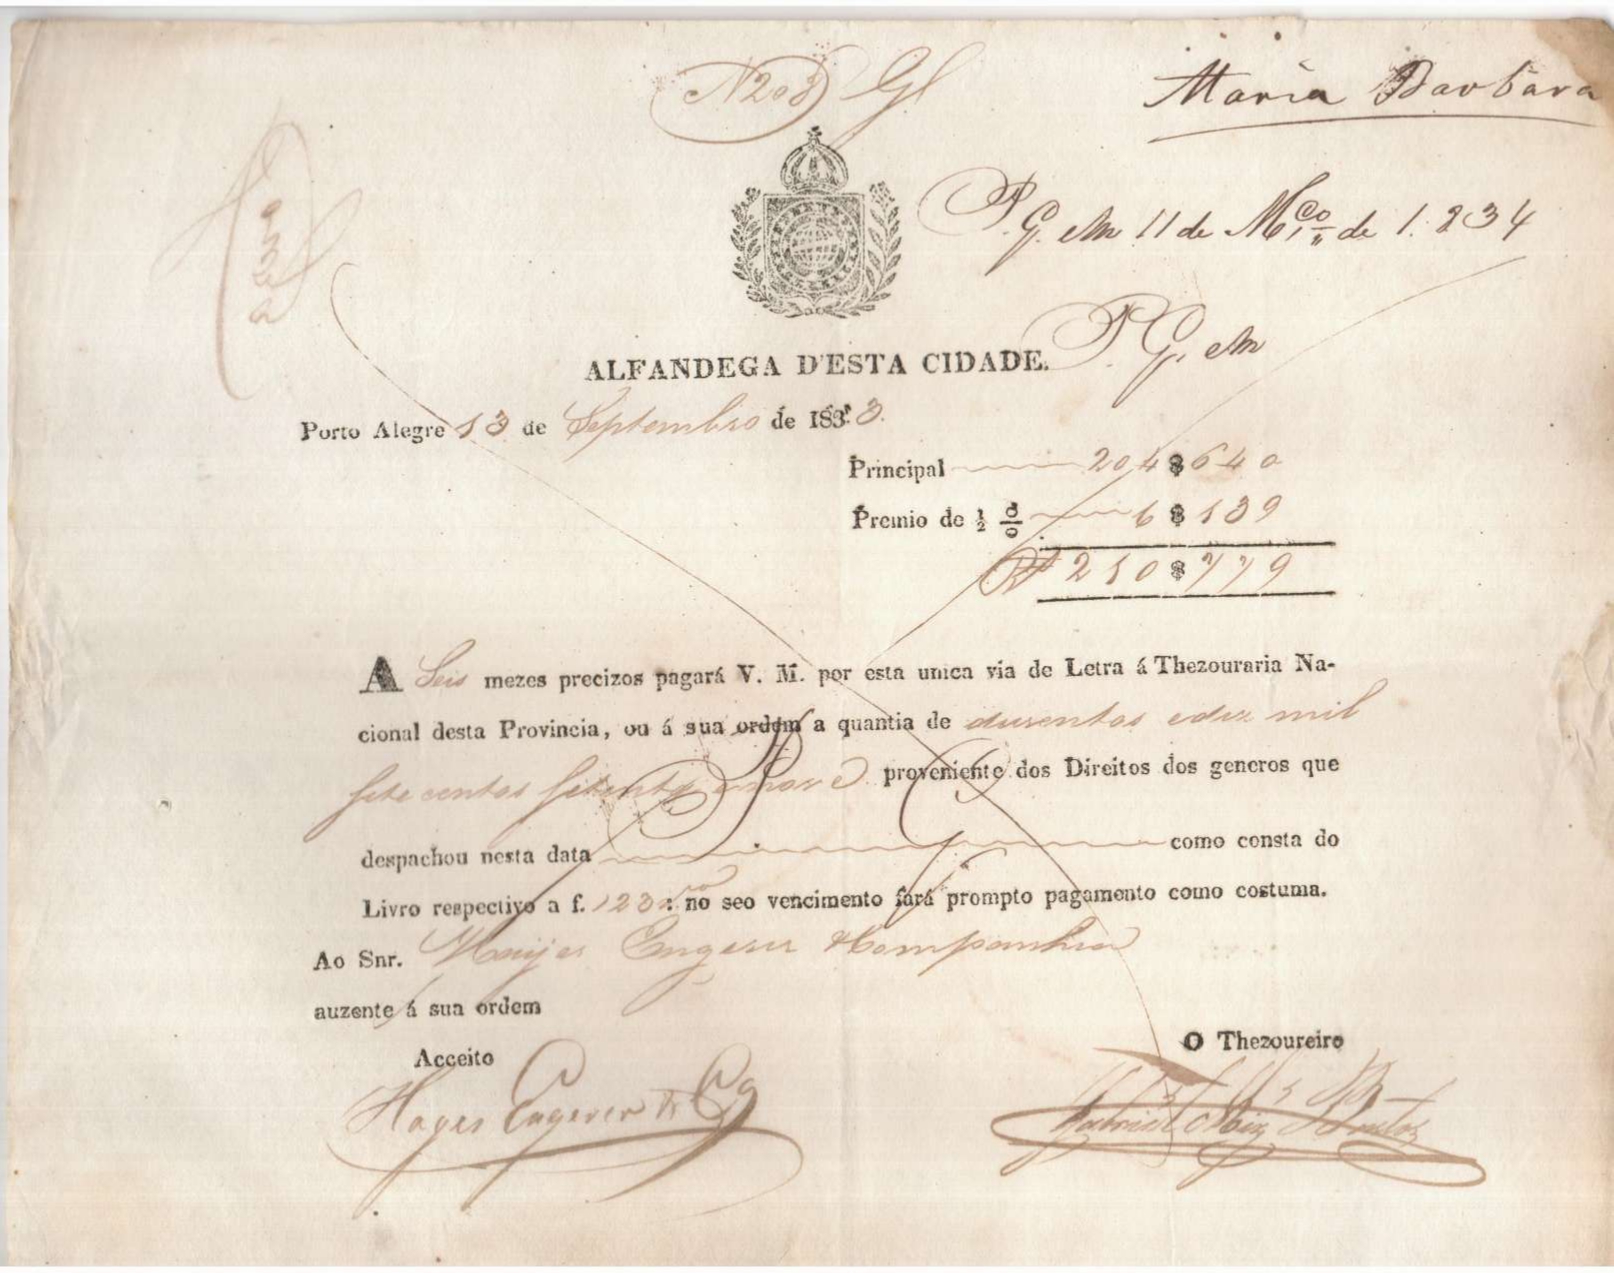 N 203 Gl
Maria Barbara
P. G. em 11 de Mço de 1.834
P. G. em
ALFANDEGA D'ESTA CIDADE.
Porto Alegre 13 de Septembro de 1833.
Principal 204$640
Premio de ½ % 6$139
R 210$779
A Seis mezes precizos pagará V. M. por esta unica via de Letra á Thezouraria Na-
cional desta Provincia, ou á sua ordem a quantia de dusentos e dez mil
sete centos setenta e nove proveniente dos Direitos dos generos que
despachou nesta data como consta do
Livro respectivo a f. 123 no seo vencimento fará prompto pagamento como costuma.
Ao Snr. Engerer & Companhia
auzente á sua ordem
Acceito
O Thezoureiro
Hayes Engerer & Ca
Gabriel